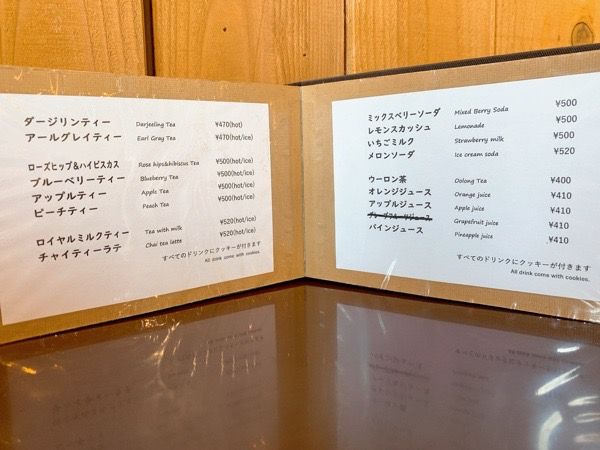 ダージリンティー Darjeeling Tea ¥470(hot)
アールグレイティー Earl Gray Tea ¥470(hot/ice)
ローズヒップ&ハイビスカス Rose hips&hibiscus Tea ¥500(hot/ice)
ブルーベリーティー Blueberry Tea ¥500(hot/ice)
アップルティー Apple Tea ¥500(hot/ice)
ピーチティー Peach Tea ¥500(hot/ice)
ロイヤルミルクティー Tea with milk ¥520(hot/ice)
チャイティーラテ Chai tea latte ¥520(hot/ice)
すべてのドリンクにクッキーが付きます
All drink come with cookies.
ミックスベリーソーダ Mixed Berry Soda ¥500
レモンスカッシュ Lemonade ¥500
いちごミルク Strawberry milk ¥500
メロンソーダ Ice cream soda ¥520
ウーロン茶 Oolong Tea ¥400
オレンジジュース Orange juice ¥410
アップルジュース Apple juice ¥410
グレープフルーツジュース Grapefruit juice ¥410
パインジュース Pineapple juice ¥410
すべてのドリンクにクッキーが付きます
All drink come with cookies.